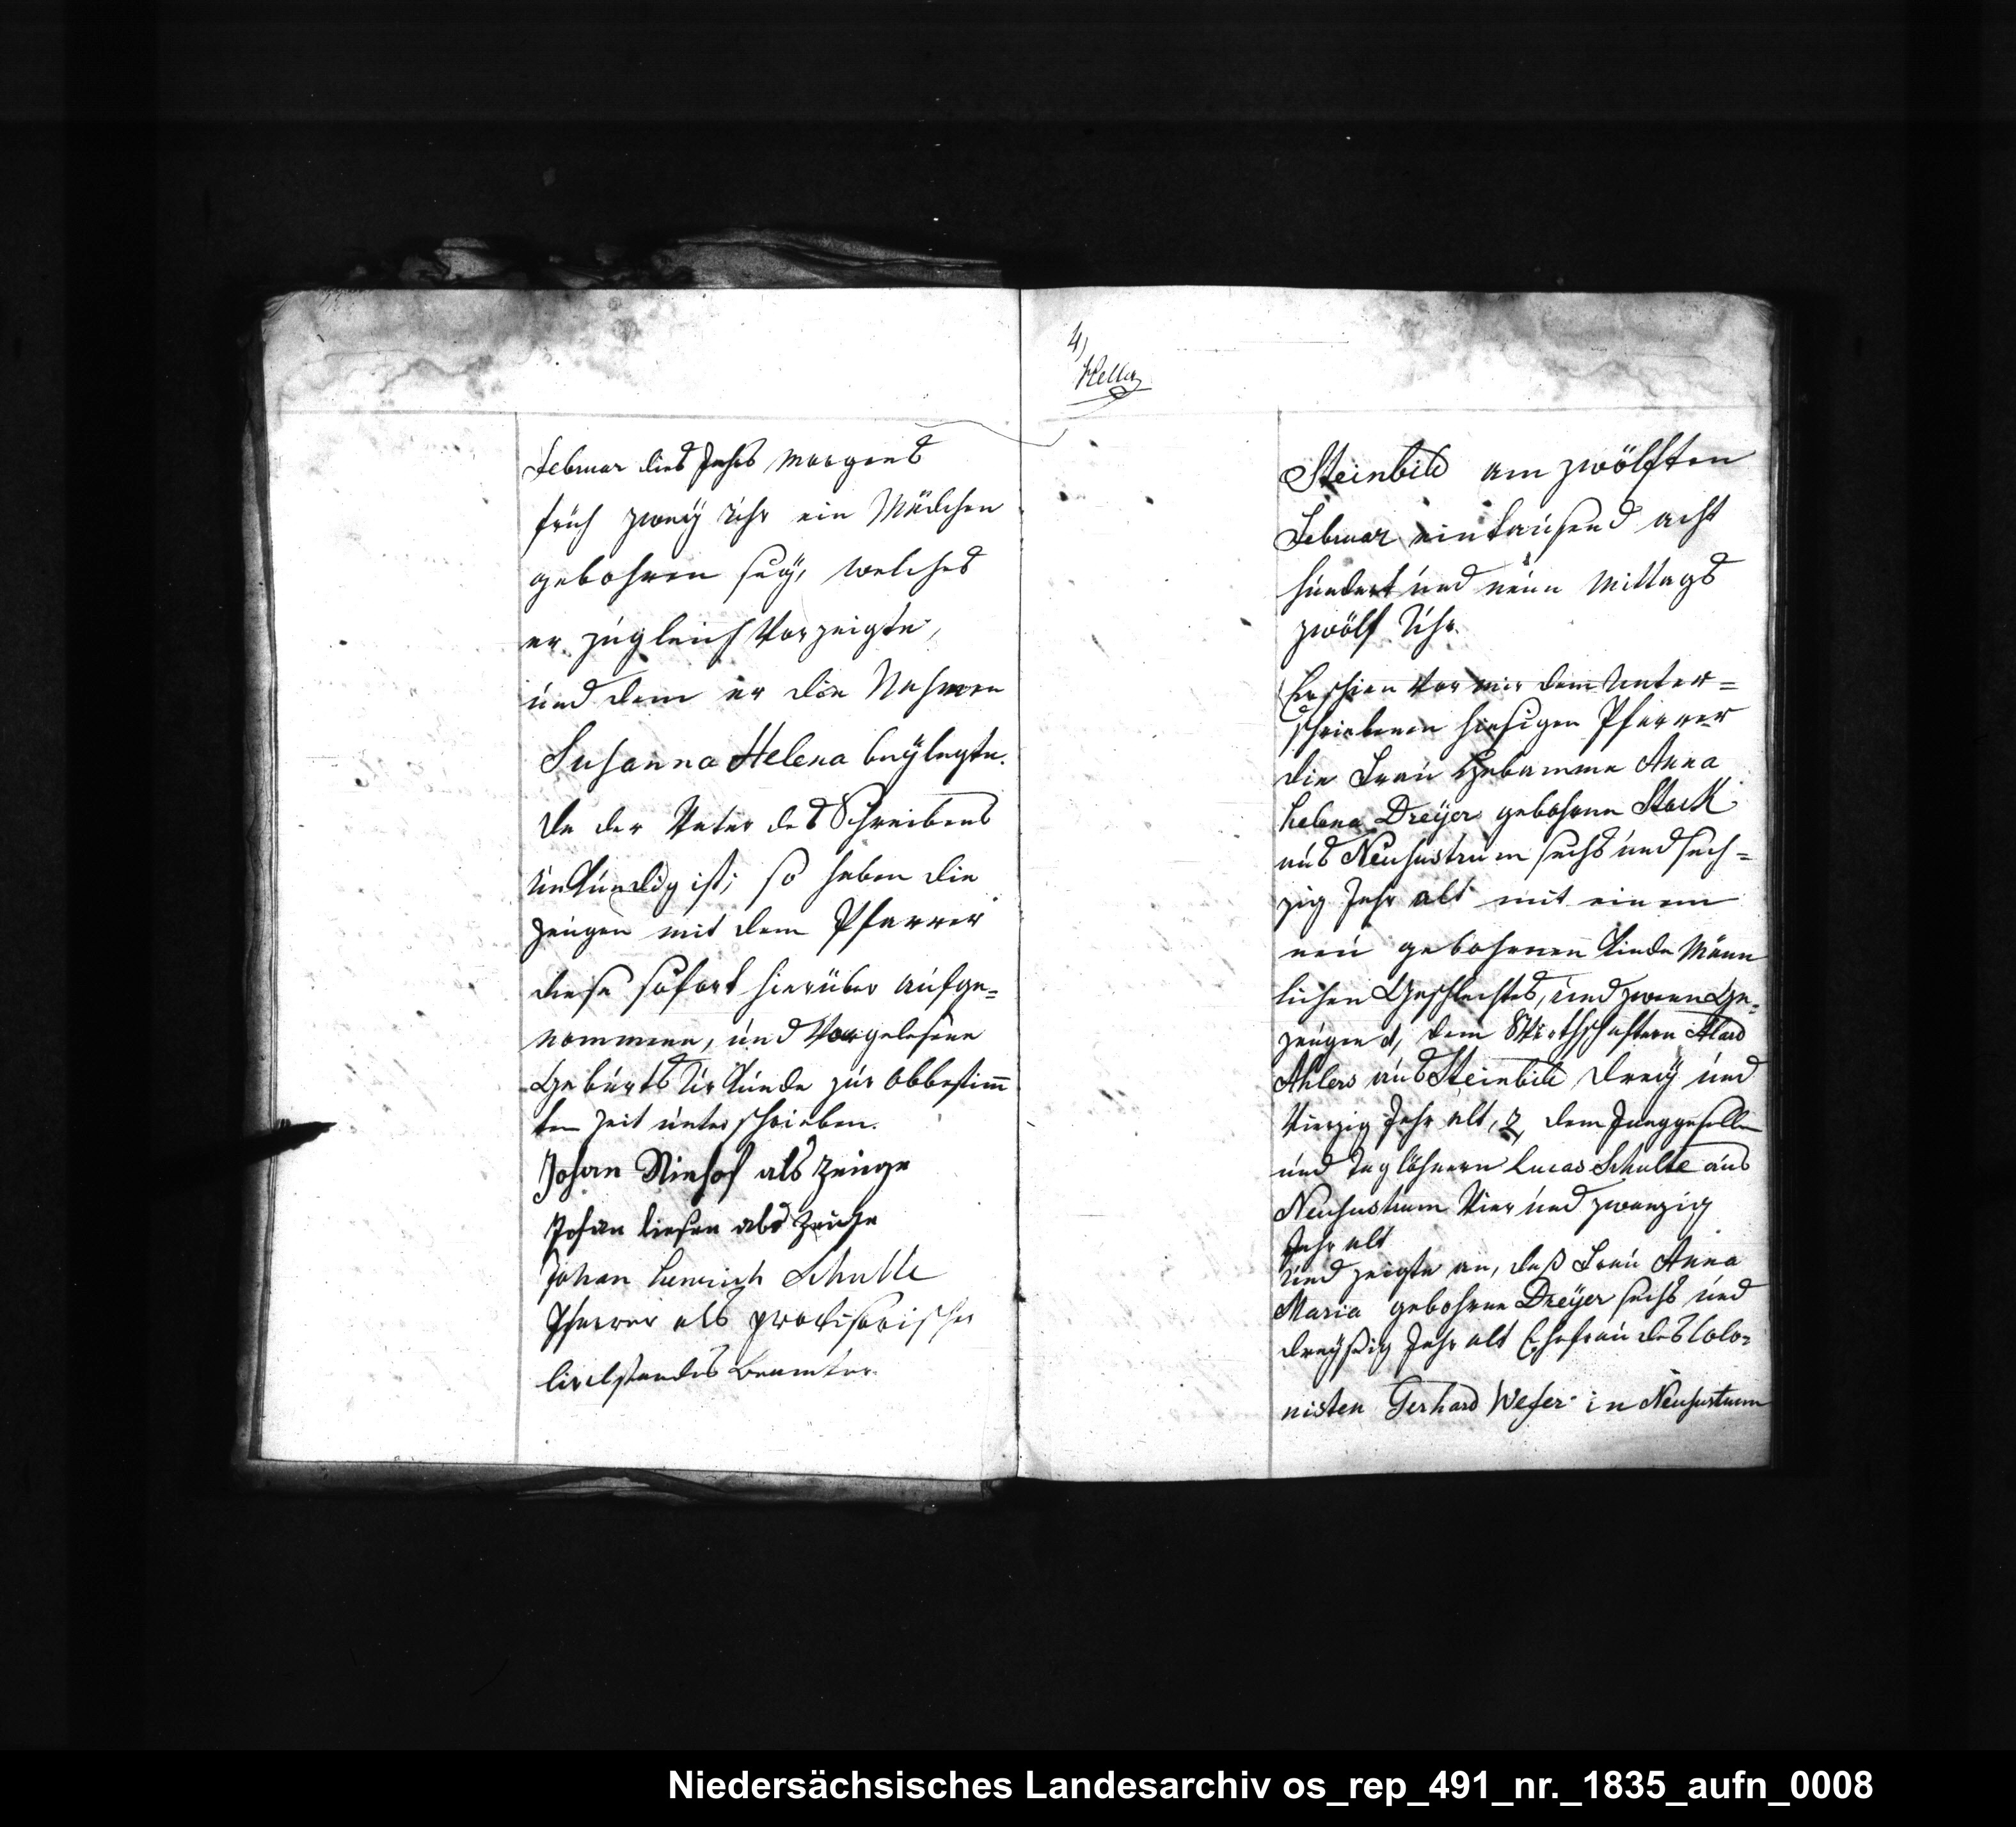 Februar dies Jahrs Morgens
früh zweÿ Uhr ein Mädchen
gebohren seÿ, welches
er zugleich Vorzeigte,
und dem er die Nahmen
Susanna Helena beÿlegte.
Da der Vater des Schreibens
Unkundig ist; so haben die
Zeugen mit dem Pfarrer
diese sofort hierüber aufge=
nommene, und Vorgelesene
Geburts Urkunde zur obbestimm
ten Zeit unterschrieben.
Johan Niehof als Zeuge
Johan Liesen als Zeuge
Johan Henrich Schulte
Pfarrer als provisorischer
Civilstandes Beamter.
4)
Steinbild am zwölften
Februar eintausend acht
hundert und neun Mittags
zwölf Uhr.
Erschien Vor mir dem Unter=
schriebenen hiesigen Pfarrer
die Frau Hebamme Anna
Helena Dreÿer gebohrne Stock
aus Neusustrum sechs und sech=
zig Jahr alt mit einem
neu gebohrnen Kinde Männ
lichen Geschlechtes, und zween Ge=
zeugen 1, dem Wirthschaftern Alard
Ahlers aus Steinbild dreÿ und
Vierzig Jahr alt, 2, dem Junggesellen
und Taglöhnern Lucas Schulte aus
Neusustrum Vier und zwanzig
Jahr alt
Und zeigte an, daß Frau Anna
Maria gebohrne Dreÿer sechs und
dreÿßig Jahr alt Ehefrau des Colo=
nisten Gerhard Wefer in Neusustrum
Niedersächsisches Landesarchiv os_rep_491_nr._1835_aufn_0008